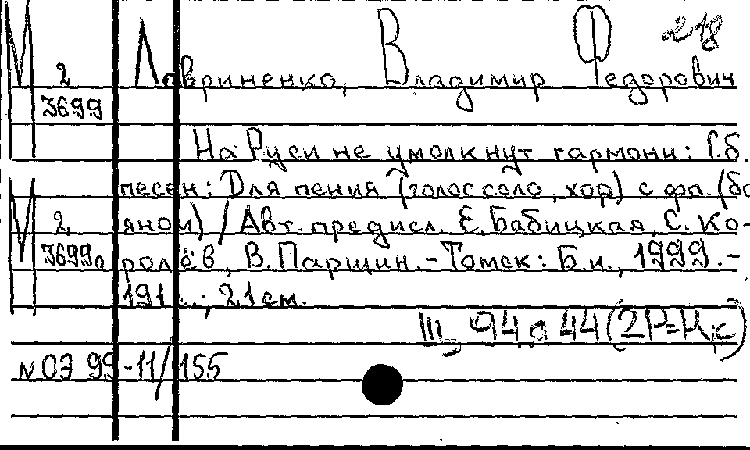 218
М 2 3699
Лавриненко, Владимир Федорович
На Руси не умолкнут гармони: Сб.
песен: Для пения (голос соло, хор) с фп. (ба-
М 2 3699а
яном) / Авт. предисл. Е. Бабицкая, С. Ко-
ролёв, В. Паршин. - Томск: Б.и., 1999. -
191 с.; 21 см.
Щ 94 о 44 (2Р=
№ОЭ 99-11/155